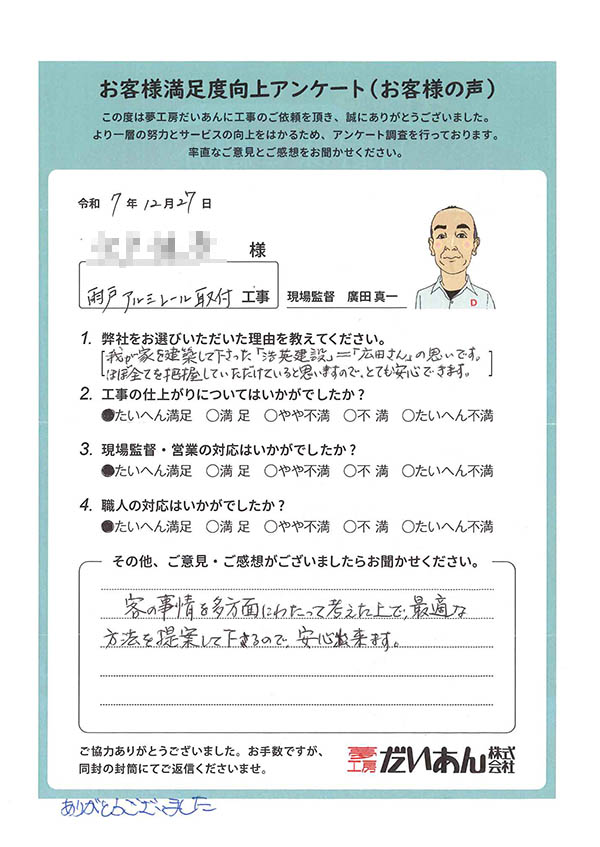 お客様満足度向上アンケート（お客様の声）
この度は夢工房だいあんに工事のご依頼を頂き、誠にありがとうございました。
より一層の努力とサービスの向上をはかるため、アンケート調査を行っております。
率直なご意見とご感想をお聞かせください。
令和 7 年 12 月 27 日
様
雨戸アルミレール取付 工事
現場監督 廣田 真一
D
1. 弊社をお選びいただいた理由を教えてください。
[我が家を建築して下さった「浩英建設」＝「広田さん」の思いです。
ほぼ全てを把握していただけていると思いますので、とても安心できます。]
2. 工事の仕上がりについてはいかがでしたか？
●たいへん満足 ○満 足 ○やや不満 ○不 満 ○たいへん不満
3. 現場監督・営業の対応はいかがでしたか？
●たいへん満足 ○満 足 ○やや不満 ○不 満 ○たいへん不満
4. 職人の対応はいかがでしたか？
●たいへん満足 ○満 足 ○やや不満 ○不 満 ○たいへん不満
その他、ご意見・ご感想がございましたらお聞かせください。
客の事情を多方面にわたって考えた上で、最適な
方法を提案して下さるので、安心出来ます。
ご協力ありがとうございました。お手数ですが、
同封の封筒にてご返信くださいませ。
夢工房 だいあん 株式会社
ありがとうございました